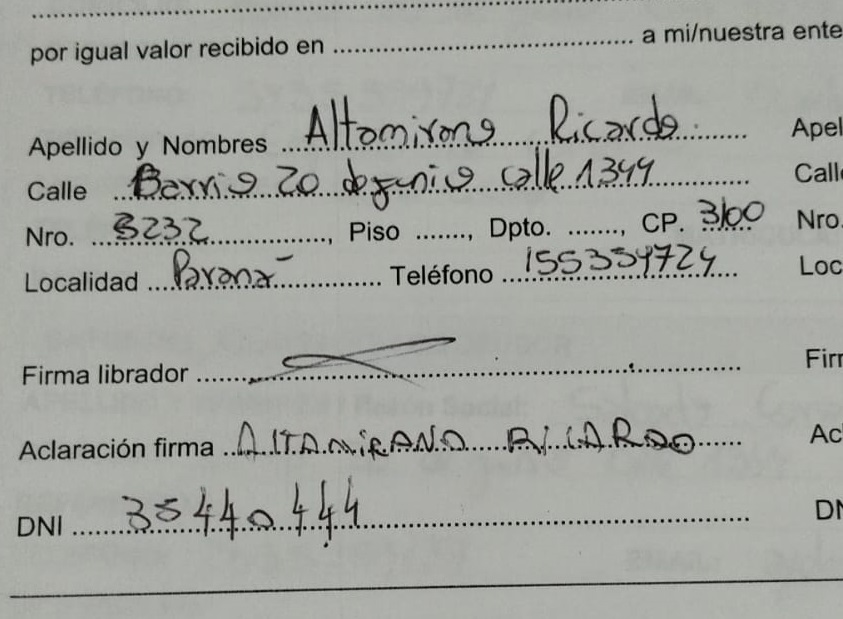 por igual valor recibido en ........ a mi/nuestra ente
Apellido y Nombres Altamirano Ricardo Apel
Calle Barrio 20 de junio calle 1344 Call
Nro. 3232, Piso ......, Dpto. ......, CP. 3100 Nro.
Localidad Paraná Teléfono 155359724 Loc
Firma librador ........ Firr
Aclaración firma ALTAMIRANO RICARDO Ac
DNI 35440444 DN